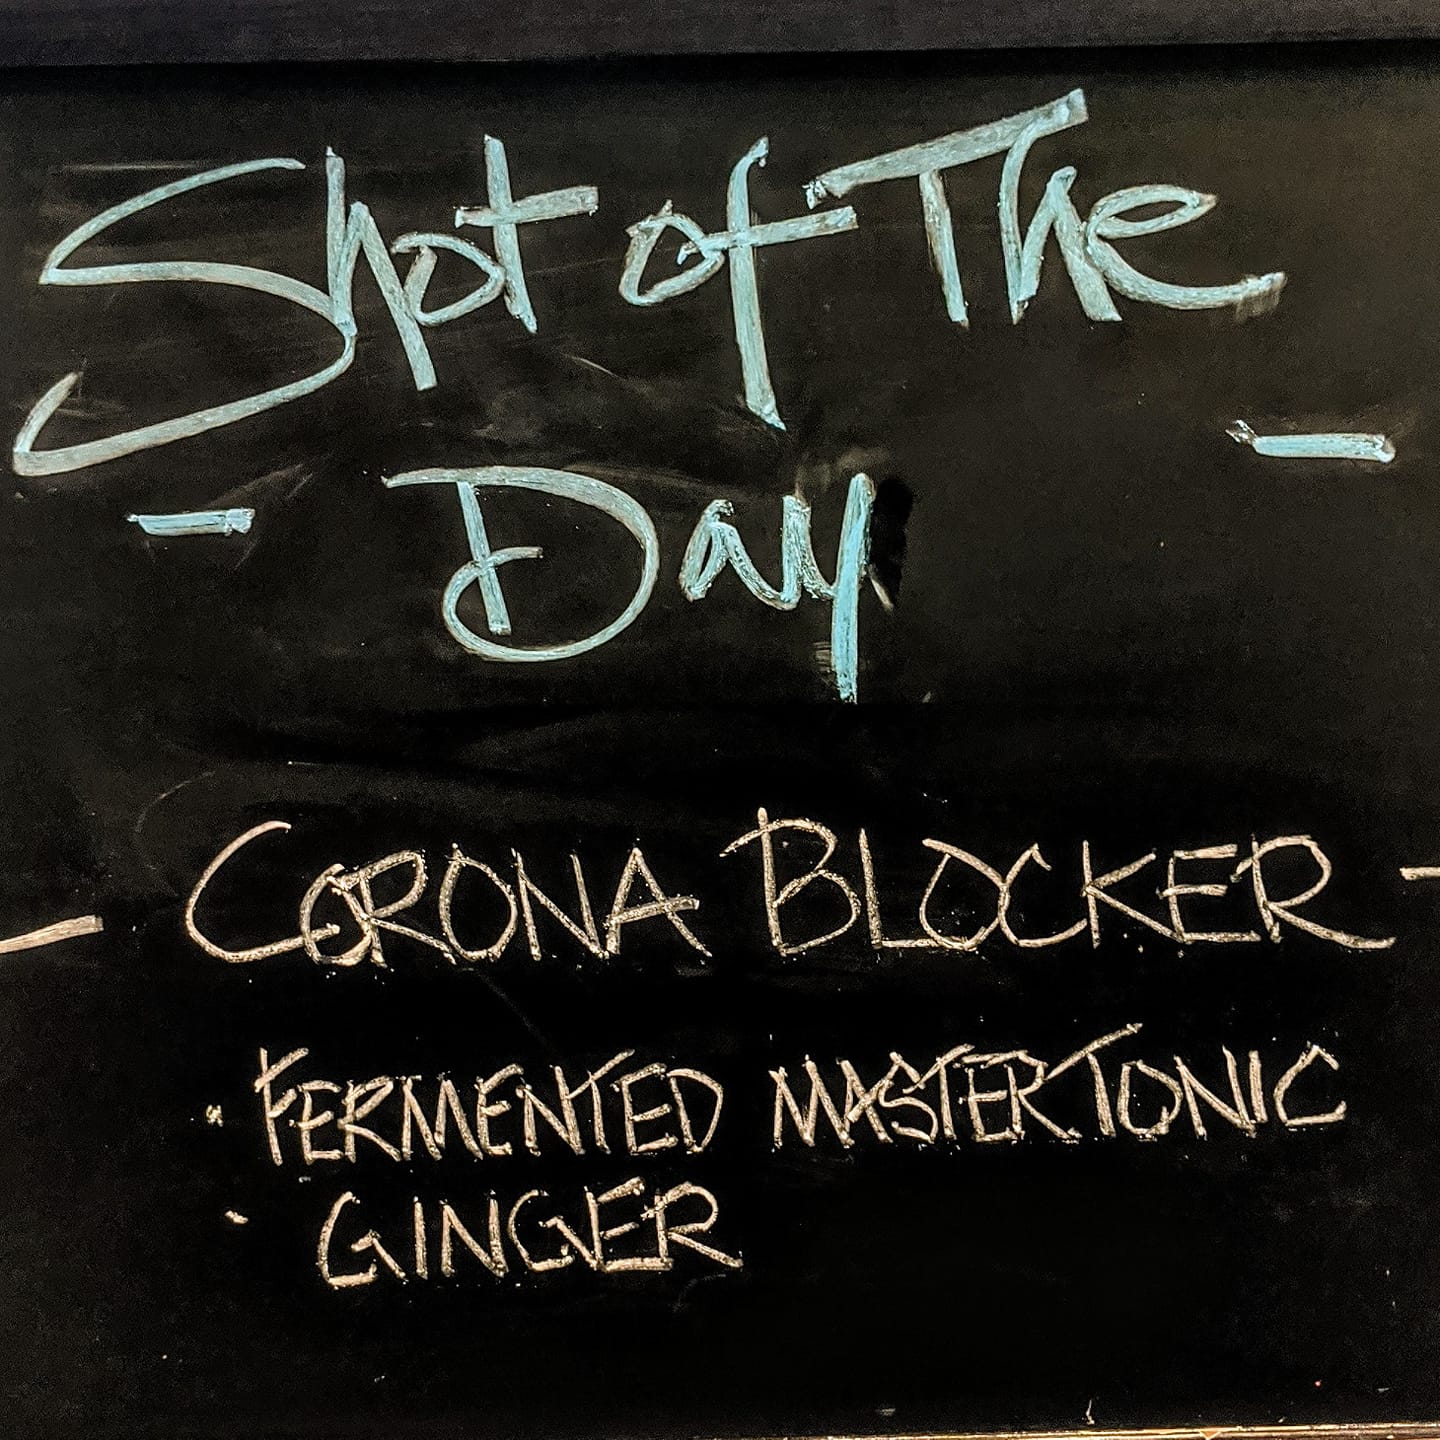 Shot of The
- Day -
- CORONA BLOCKER -
· FERMENTED MASTER TONIC
· GINGER